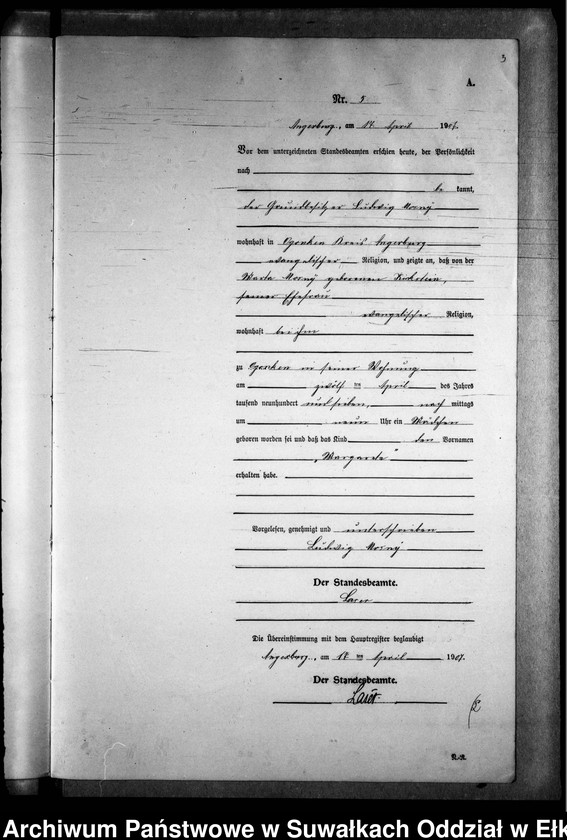 3
A.
Nr. 5
Angerburg, am 17. April 1907.
Vor dem unterzeichneten Standesbeamten erschien heute, der Persönlichkeit
nach
be kannt,
der Grundbesitzer Ludwig
wohnhaft in Ogonken Kreis Angerburg
evangelischer Religion, und zeigte an, daß von der
geborenen
seiner Ehefrau
evangelischer Religion,
wohnhaft bei ihm
zu Ogonken in seiner Wohnung
am zwölf ten April des Jahres
tausend neunhundert und sieben, nach mittags
um neun Uhr ein Mädchen
geboren worden sei und daß das Kind den Vornamen
erhalten habe.
Vorgelesen, genehmigt und unterschrieben
Ludwig
Der Standesbeamte.
Die Übereinstimmung mit dem Hauptregister beglaubigt
Angerburg, am 17. ten April 1907.
Der Standesbeamte.
Archiwum Państwowe w Suwałkach Oddział w Ełk